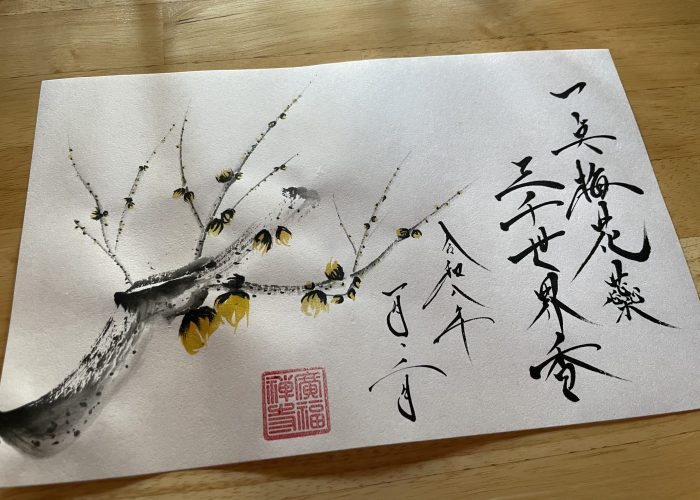 一点梅花蘂
三千世界香
令和八年
一月・二月
廣福
禅寺